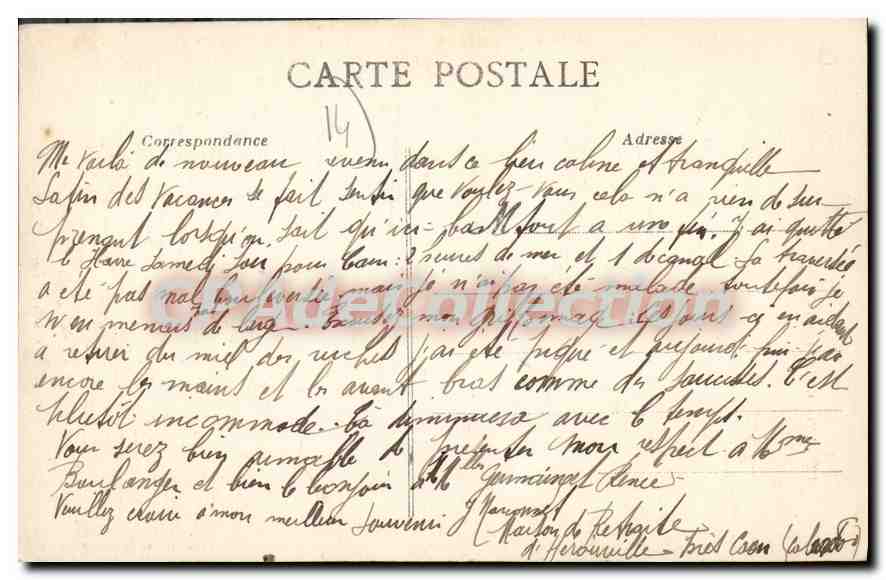 CARTE POSTALE
14
Correspondance Adresse
Me voilà de nouveau revenu dans ce bien calme et tranquille
La fin des Vacances se fait sentir que voulez-vous cela n'a rien de sur-
prenant lorsqu'on sait qu'ici-bas tout a une fin. J'ai quitté
le Havre Samedi Soir pour Caen : 2 heures de mer et 1 de canal La traversée
a été pas mal bouleversée mais je n'ai pas été malade toutefois je
n'en menais pas large. Excusez mon griffonnage. Les jours ci en aidant
a retirer du miel des ruches j'ai été piqué et aujourd'hui j'ai
encore les mains et les avant bras comme des saucisses. C'est
plutôt incommode. Ça diminuera avec le temps.
Vous serez bien aimable de présenter mon respect à Mme
Boulanger et bien le bonjour à Melles Germaine et Renée
Veuillez croire à mon meilleur Souvenir
Maison de Retraite
d'Hérouville - Près Caen (Calvados)
CPA Collection